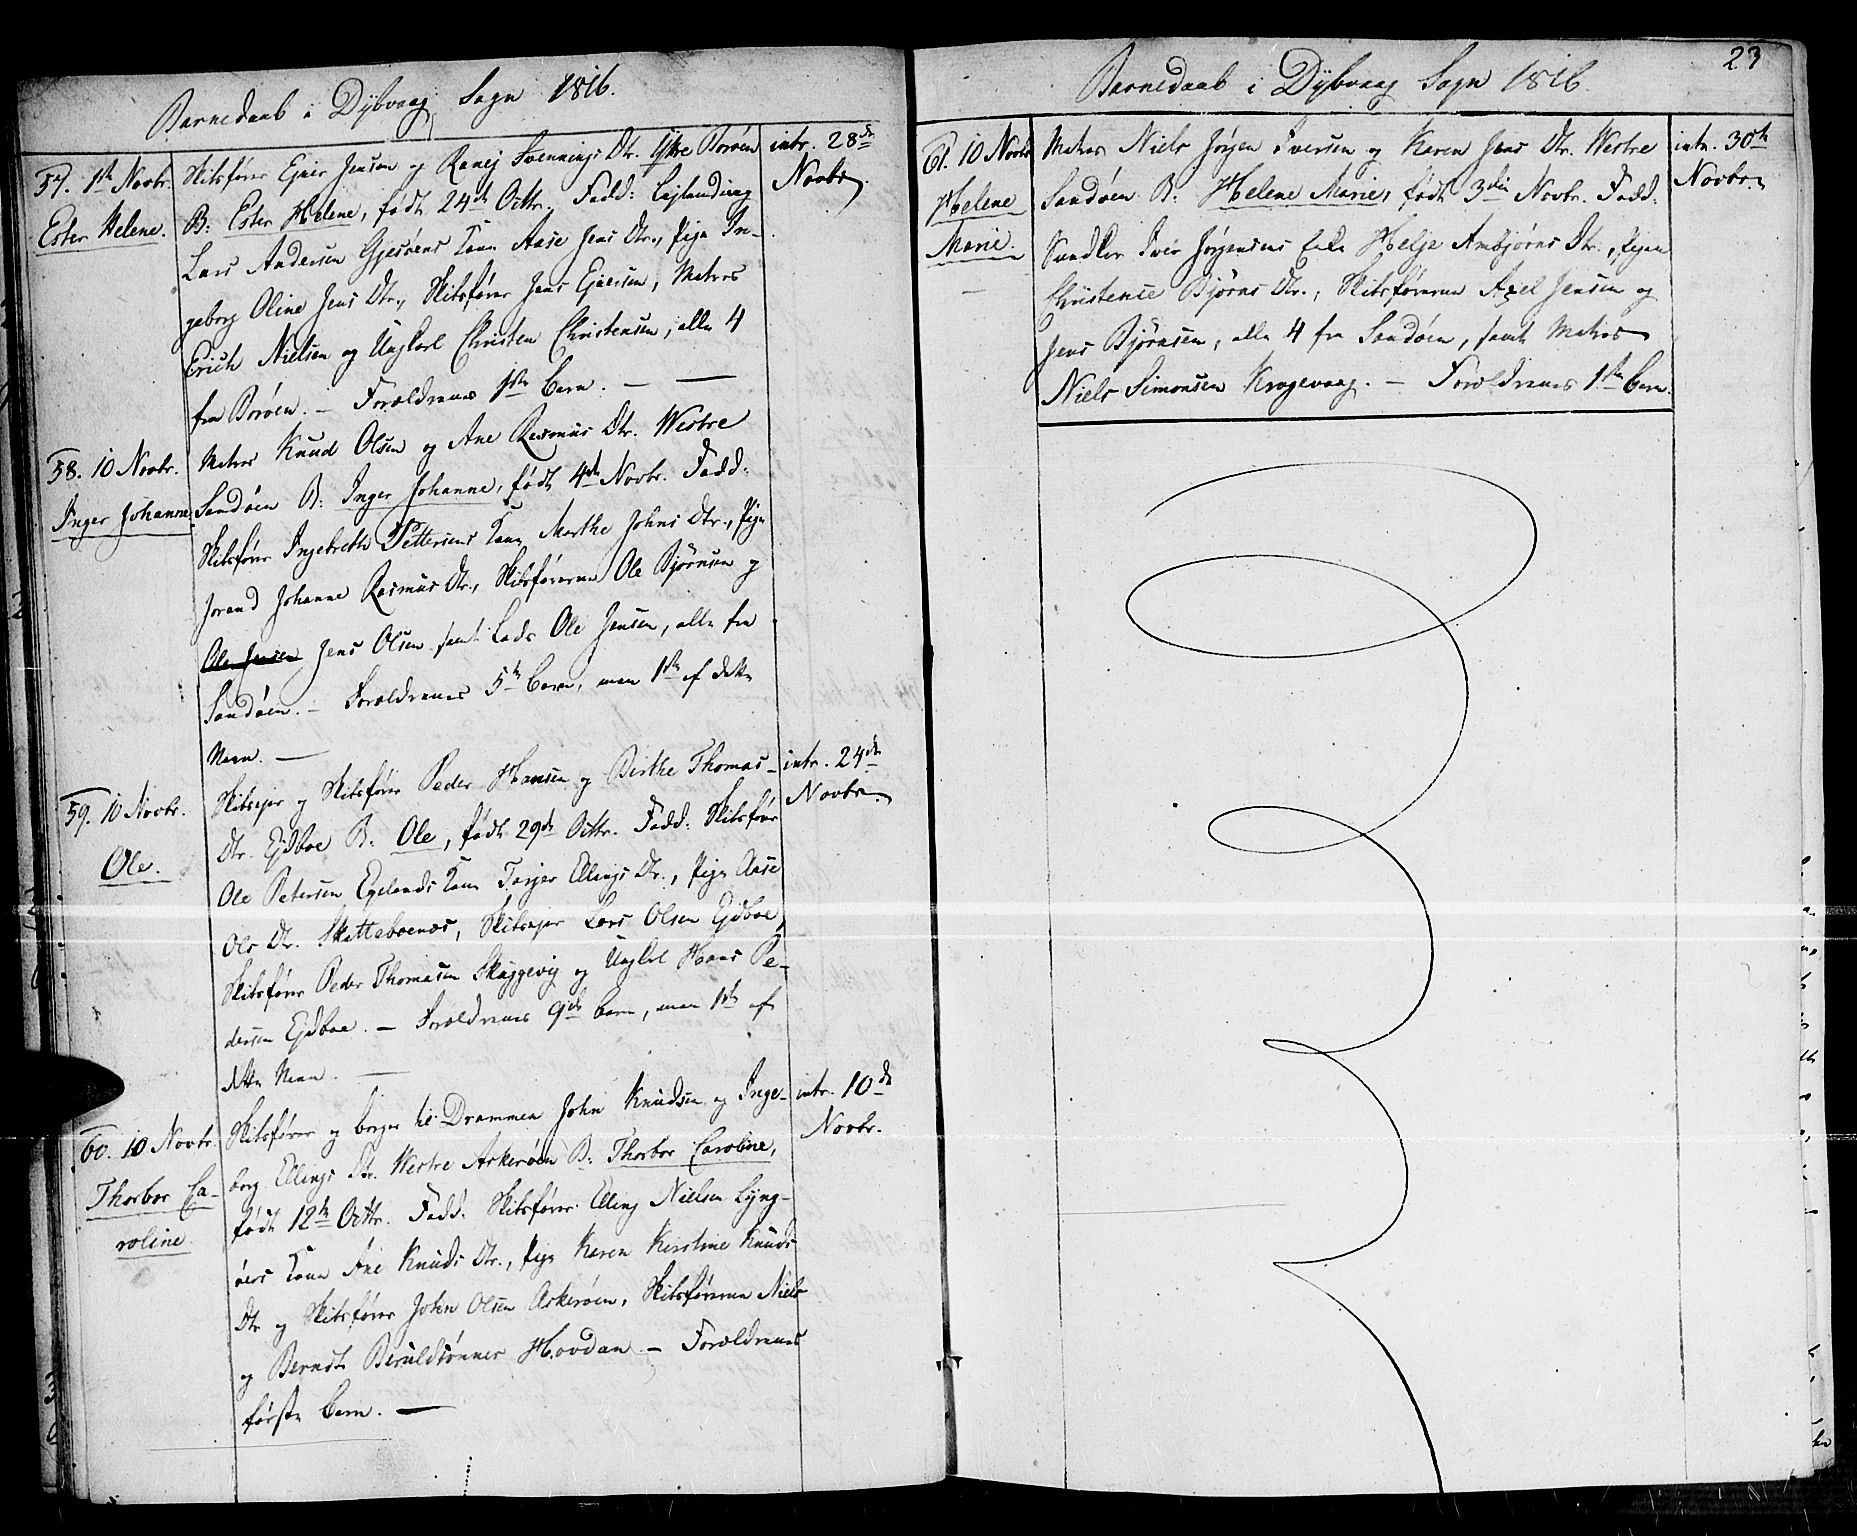 Barnedaab i Dybvaag Sogn 1816.
57. 1ste Novbr.
Ester Helene.
Skibsfører Ejner Jensen og Ranej Svennings Dtr. Ystre Borøen
B: Ester Helene, født 24de Octbr. Fadd: Lejlænding
Lars Andersen Gjesøens Kone Aase Jens Dtr., Pige In-
geborg Oline Jens Dtr., Skibsfører Jens Ejnersen, Matros
Erich Nielsen og Ungkarl Christen Christensen, alle 4
fra Borøen. – Forældrenes 1ste Barn. –
intr. 28de
Novbr.
58. 10 Novbr.
Inger Johanne
Matros Knud Olsen og Ane Rasmus Dtr. Westre
Sandøen B: Inger Johanne, født 4de Novbr. Fadd:
Skibsfører Ingebreth Pettersens Kone Marthe Johns Dtr., Pige
Jorand Johanne Rasmus Dtr., Skibsførerne Ole Bjørnsen og
Ole Jensen Jens Olsen samt Lods Ole Jensen, alle fra
Sandøen. – Forældrenes 5te Barn, men 1ste af dette
Navn. –
59. 10 Novbr.
Ole.
Skibsejer og Skibsfører Peder Hansen og Birthe Thomas-
Dtr. Ejdboe B: Ole, født 29de Octbr. Fadd: Skibsfører
Ole Petersen Egelands Kone Tarjer Ellings Dtr., Pige Aase
Ols Dtr. Skatteboenæs, Skibsejer Lars Olsen Ejdboe,
Skibsfører Peder Thomasen Skaggevig og Ungkrl Hans Pe-
dersen Ejdboe. – Forældrenes 9de Barn, men 1ste af
dette Navn. –
intr. 24de
Novbr.
60. 10 Novbr.
Thorbor Ca-
roline.
Skibsfører og borger til Drammen John Knudsen og Inge-
borg Ellings Dtr. Westre Askerøen B: Thorbor Caroline,
født 12te Octbr. Fadd: Skibsfører Elling Nielsen Lyng-
øers Kone Ane Knuds Dtr., Pige Karen Kirstine Knuds
Dtr og Skibsfører John Olsen Askerøen, Skibsførerne Niels
og Berndt Beruldsønner Hovdan – Forældrenes
første Barn. –
intr. 10de
Novbr.
23
Barnedaab i Dybvaag Sogn 1816.
61. 10 Novbr
Helene
Marie.
Matros Niels Jørgen Iversen og Karen Jens Dtr. Westre
Sandøen B: Helene Marie, født 3die Novbr. Fadd:
Iver Jørgensens Helje Ambjørns Dtr., Pigen
Christense Bjørns Dtr., Skibsførerne Axel Jensen og
Jens Bjørnsen, alle 4 fra Sandøen, samt Matros
Niels Simonsen Krogevaag. – Forældrenes 1ste Barn.
intr. 30te
Novbr.